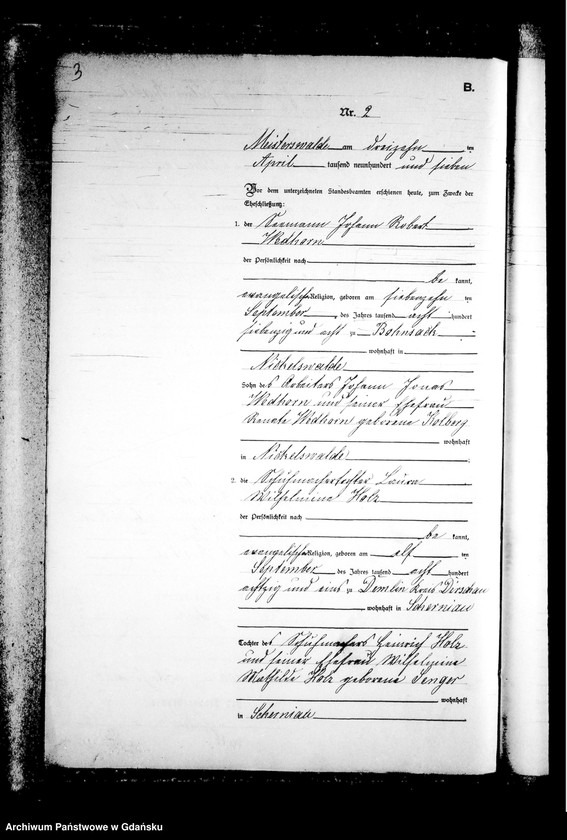 3
B.
Nr. 2
Meisterswalde am dreizehn ten
April tausend neunhundert und sieben
Vor dem unterzeichneten Standesbeamten erschienen heute, zum Zwecke der
Eheschließung:
1. der Seemann Johann Robert
Wedhorn
der Persönlichkeit nach
be kannt,
evangelischer Religion, geboren am siebenzehn ten
September des Jahres tausend acht hundert
siebenzig und acht zu Bohnsack
wohnhaft in
Nickelswalde
Sohn des Arbeiters Johann Jonas
Wedhorn und seiner Ehefrau
Renate Wedhorn geborene Kolberg
wohnhaft
in Nickelswalde
2. die Schuhmachertochter Laura
Wilhelmine Holz
der Persönlichkeit nach
be kannt,
evangelischer Religion, geboren am elf ten
September des Jahres tausend acht hundert
achtzig und eins zu Demlin Kreis Dirschau
wohnhaft in Scherniau
Tochter des Schuhmachers Heinrich Holz
und seiner Ehefrau Wilhelmine
Mathilde Holz geborene
wohnhaft
in Scherniau
Archiwum Państwowe w Gdańsku